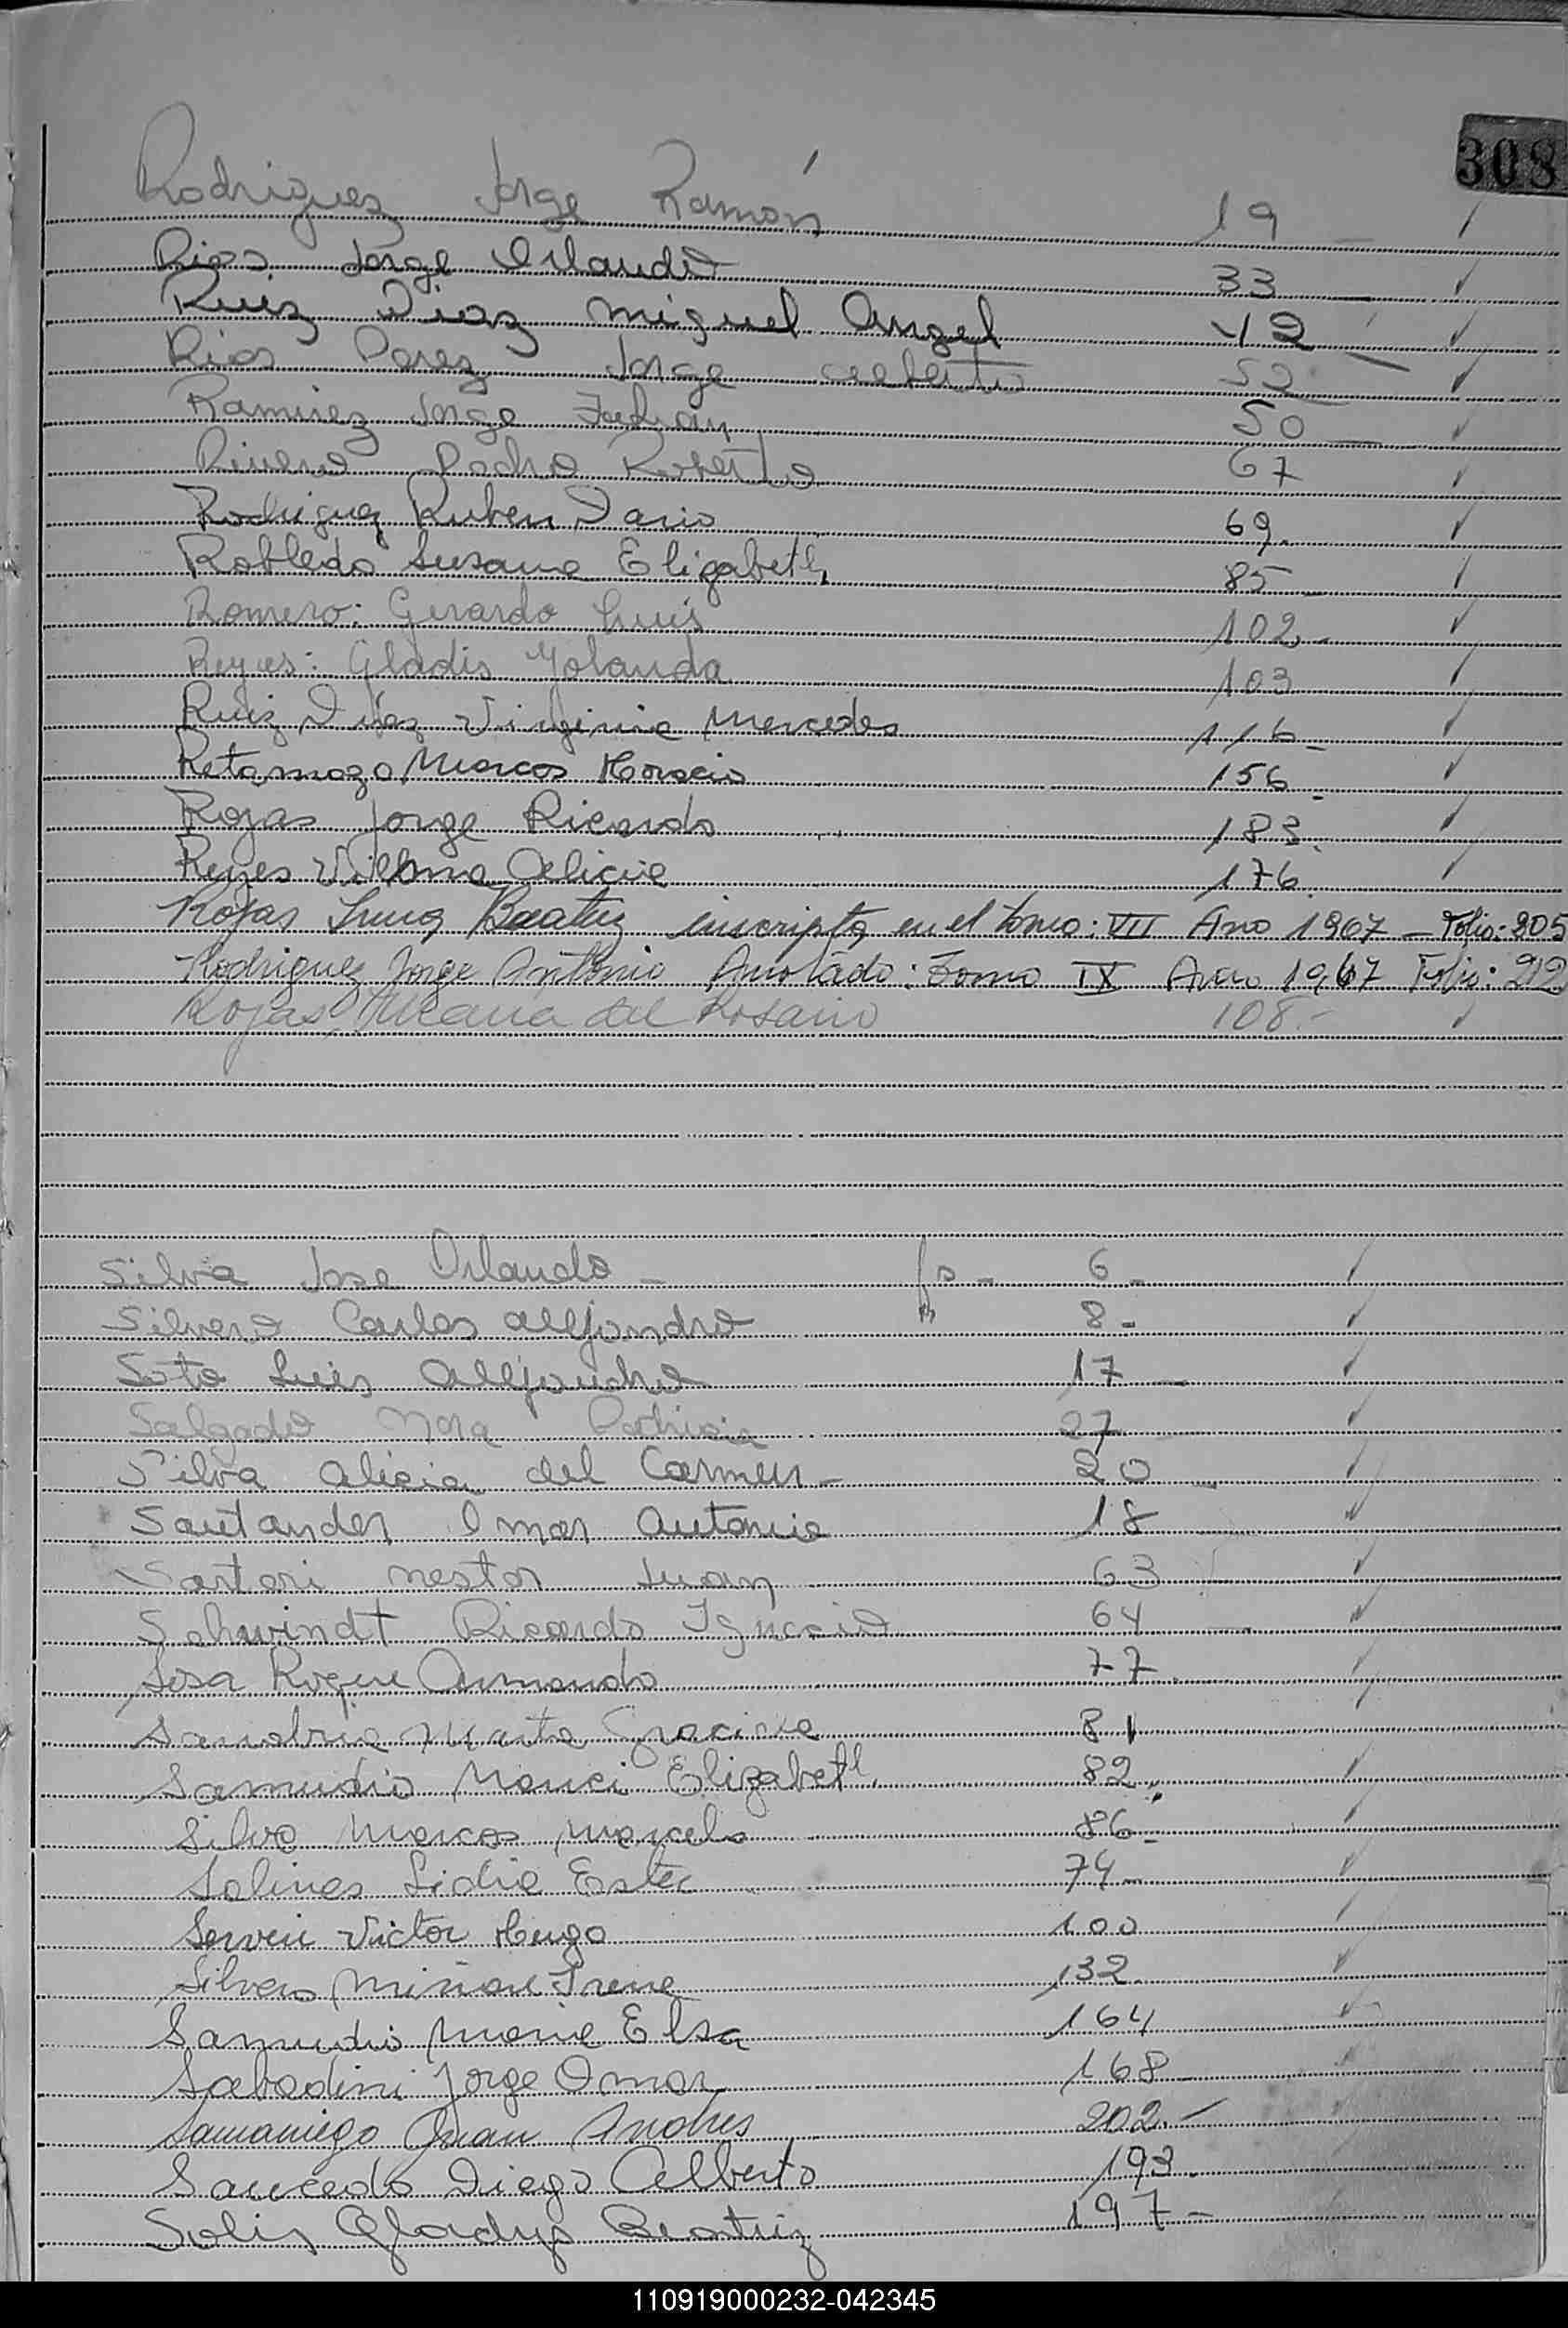 308
Rodriguez Jorge Ramón 19 - ✓
Rios Jorge Orlando 33 - ✓
Ruiz Diaz Miguel Angel 42 - ✓
Rios Perez Jorge Alberto 52 - ✓
Ramirez Jorge Fabian 50 - ✓
Rivero Pedro Roberto 67 ✓
Rodriguez Ruben Dario 69. ✓
Robledo Susana Elizabeth 85 - ✓
Romero: Gerardo Luis 102.- ✓
Reyes: Gladis Yolanda 103 ✓
Ruiz Diaz Virginia Mercedes 116 - ✓
Retamozo Marcos Horacio 156 - ✓
Rojas Jorge Ricardo 183. ✓
Reyes Vilma Alicia 176. ✓
Rojas Beatriz inscripta en el tomo: VII Ano 1967 - Folio: 205
Rodriguez Jorge Antonio Anotado: Tomo IX Ano 1967 Folio: 212
Rojas, Maria del Rosario 108.- ✓
Silva Jose Orlando - fo - 6 - ✓
Silvero Carlos Alejandro " 8 - ✓
Soto Luis Alejandro 17 - ✓
Salgado Nora Patricia 27 ✓
Silva Alicia del Carmen - 20 - ✓
Santander Omar Antonio 18 ✓
Sartori Nestor Juan 63 ✓
Schwindt Ricardo Ignacio 64 - ✓
Sosa Roque Armando 77. ✓
Sanabria Marta Graciela 81
Samudio Nanci Elizabeth 82. ✓
Silva Marcos Marcelo 86 - ✓
Salinas Lidia Ester 74 - ✓
Servin Victor Hugo 100 ✓
Silvero Mirian Irene 132. ✓
Samudio Maria Elsa 164 ✓
Sabadini Jorge Omar 168 ✓
Samaniego Juan Andres 202.- ✓
Saucedo Diego Alberto 193. ✓
Solis Gladys Beatriz 197 - ✓
110919000232-042345